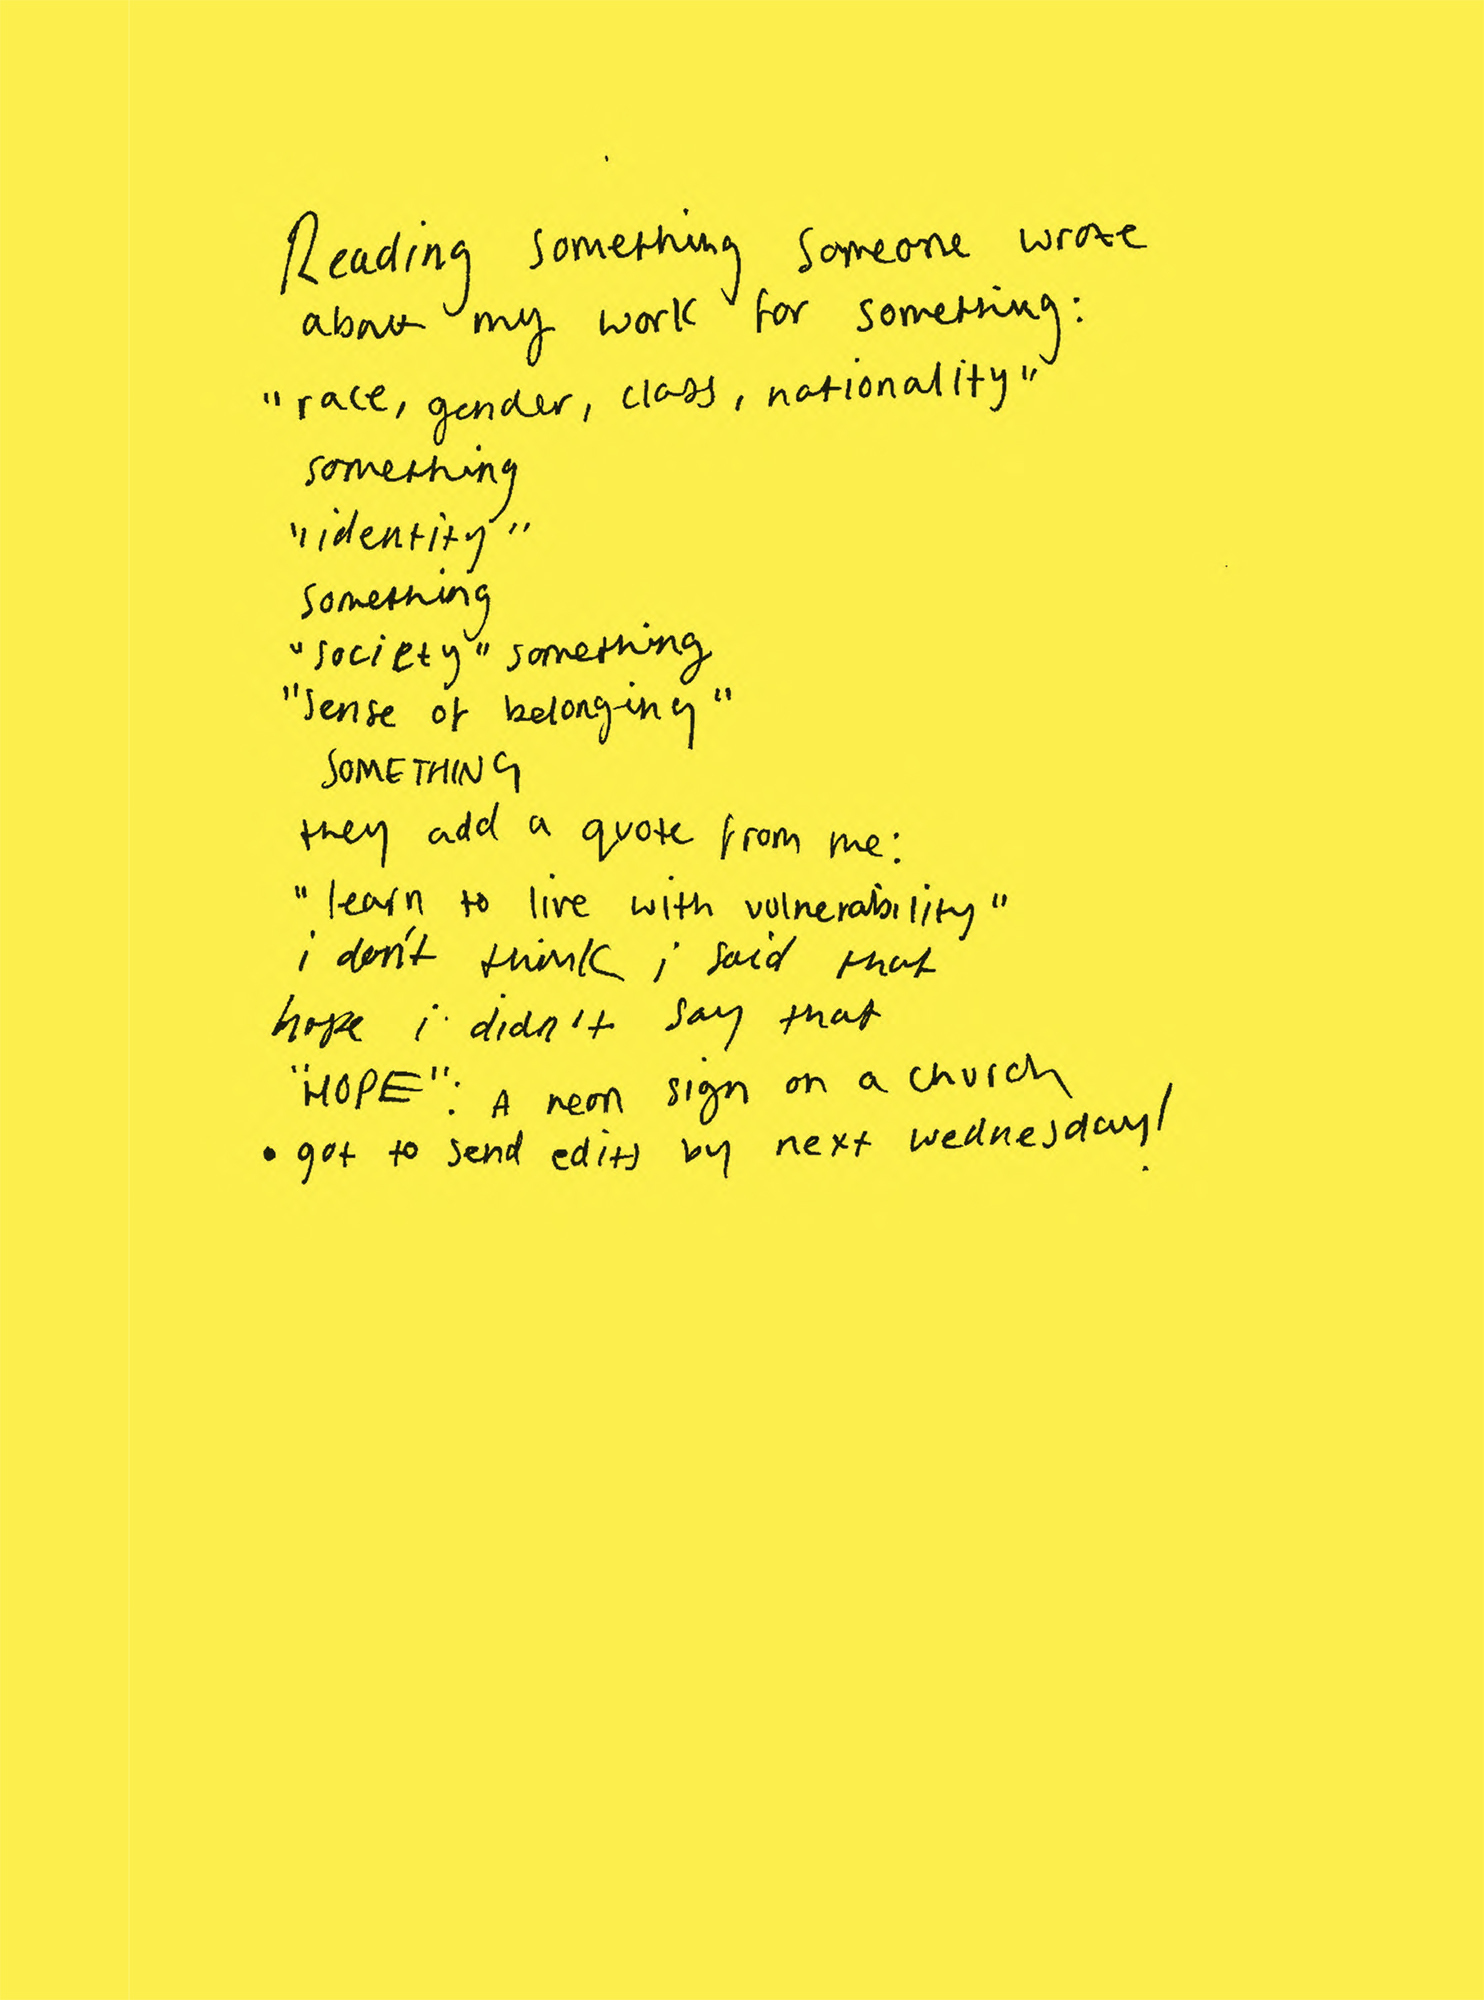 Reading something someone wrote
about my work for something:
"race, gender, class, nationality"
something
"identity"
something
"society" something
"sense of belonging"
SOMETHING
they add a quote from me:
"learn to live with vulnerability"
i don't think i said that
hope i didn't say that
"HOPE": A neon sign on a church
• got to send edits by next wednesday!